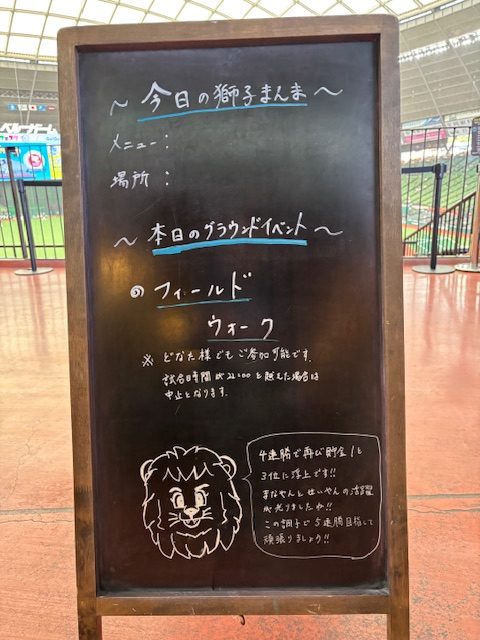 ～ 今日の獅子まんま ～
メニュー：
場所 ：
～ 本日のグラウンドイベント ～
フィールド
ウォーク
※ どなた様でもご参加可能です。
試合時間が22:00を越えた場合は
中止となります。
4連勝で再び貯金1と
3位に浮上です!!
まなやんとせいやんの活躍
が光りましたね!!
この調子で5連勝目指して
頑張りましょう!!